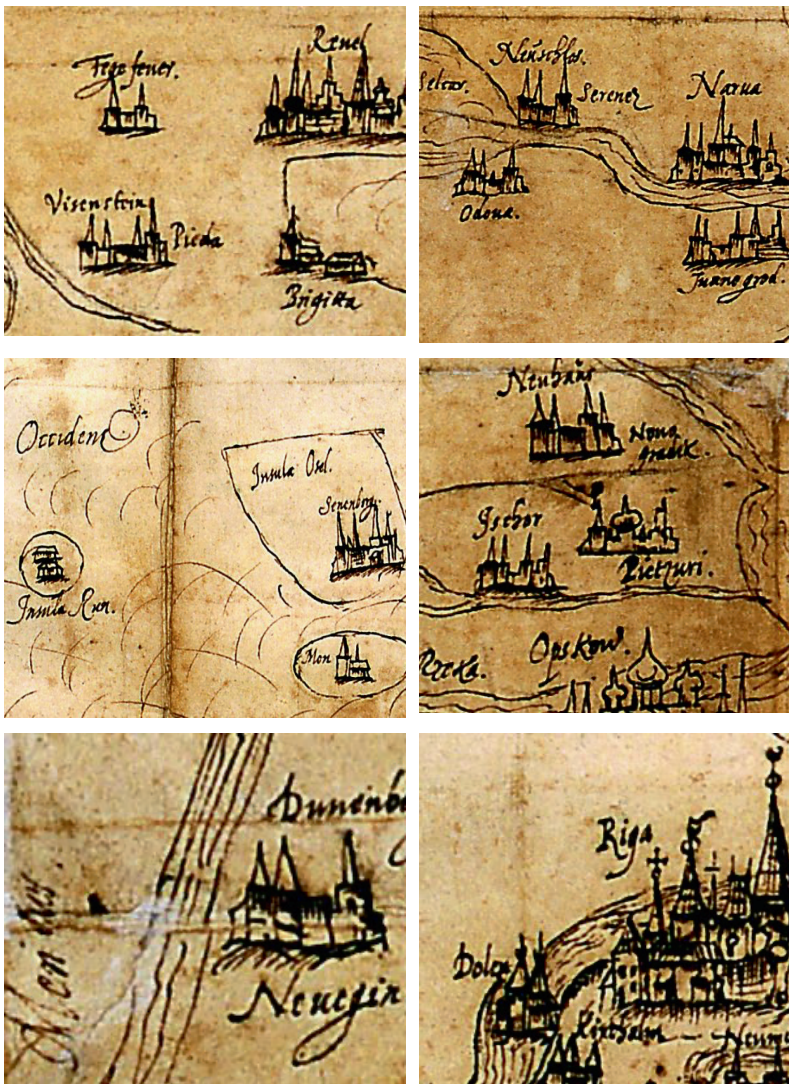 Fegefeuer.
Reuel
Visenstein
Pieda
Brigitta
Neuschlos.
Serenez
Narua
Odoua.
Juanogrod.
Occidens
Insula Osel.
Sonenborg.
Insula Run.
Mon
Neuhaus
Nouo
grodek.
Ischor
Pietzuri.
Opskow.
Dunenb
Neuegin
Riga
Dolen
Kirkholm
Neum